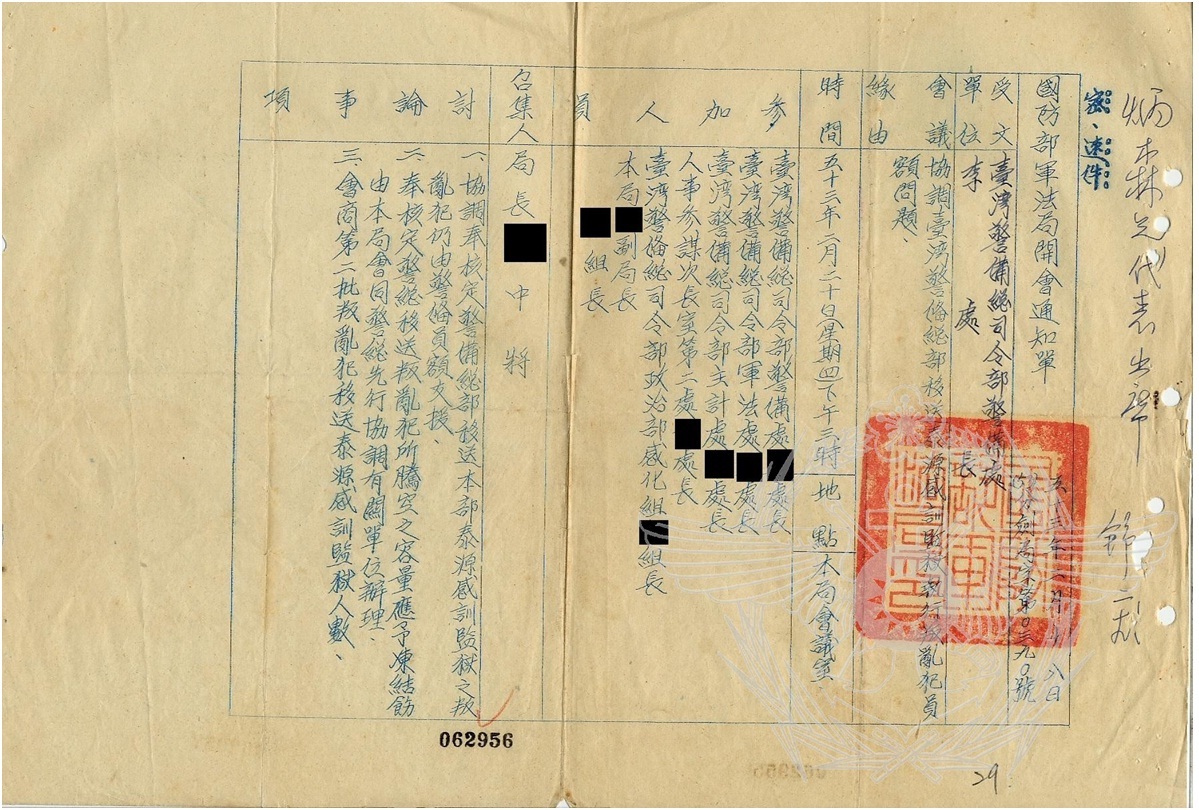 炳森兄代表出席
密、速件
五十三年二月十八日
國防部軍法局開會通知單
受文單位
臺灣警備總司令部警備處
李處長
會議緣由
協調臺灣警備總部移送泰源感訓監獄執行叛亂犯員
額問題、
時間
五十三年二月二十日(星期四)下午三時
地點
本局會議室
參加人員
臺灣警備總司令部警備處處長
臺灣警備總司令部軍法處處長
臺灣警備總司令部主計處處長
人事參謀次長室第二處處長
臺灣警備總司令部政治部感化組組長
本局副局長
組長
召集人
局長中將
討論事項
一、協調奉核定警備總部移送本部泰源感訓監獄之叛
亂犯仍由警備員額支援、
二、奉核定警總移送叛亂犯所騰空之容量應予凍結飭
由本局會同警總先行協調有關單位辦理、
三、會商第二批叛亂犯移送泰源感訓監獄人數、
062956
29